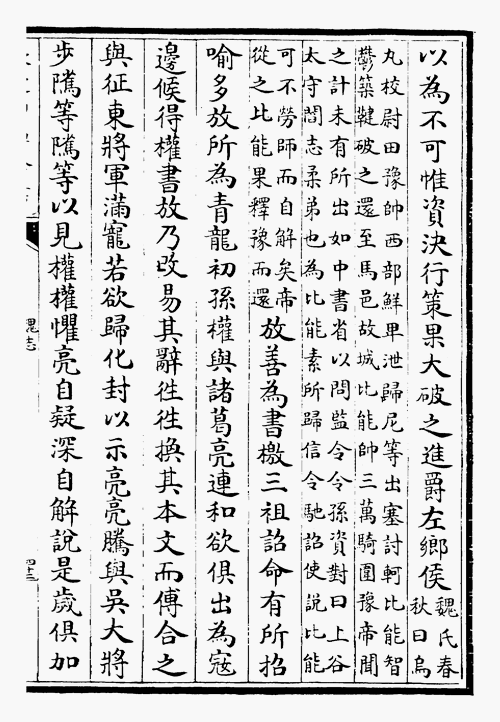 以為不可惟資決行策果大破之進爵左鄉侯魏氏春
秋曰烏
丸校尉田豫帥西部鮮卑泄歸尼等出塞討軻比能智
鬱築鞬破之還至馬邑故城比能帥三萬騎圍豫帝聞
之計未有所出如中書省以問監令令孫資對曰上谷
太守閻志柔弟也為比能素所歸信令馳詔使説比能
可不勞師而自解矣帝
從之比能果釋豫而還放善為書檄三祖詔命有所招
喻多放所為青龍初孫權與諸葛亮連和欲俱出為寇
邊候得權書放乃改易其辭往往換其本文而傅合之
與征東將軍滿寵若欲歸化封以示亮亮騰與吳大將
步隲等隲等以見權權懼亮自疑深自解說是歲俱加
魏志